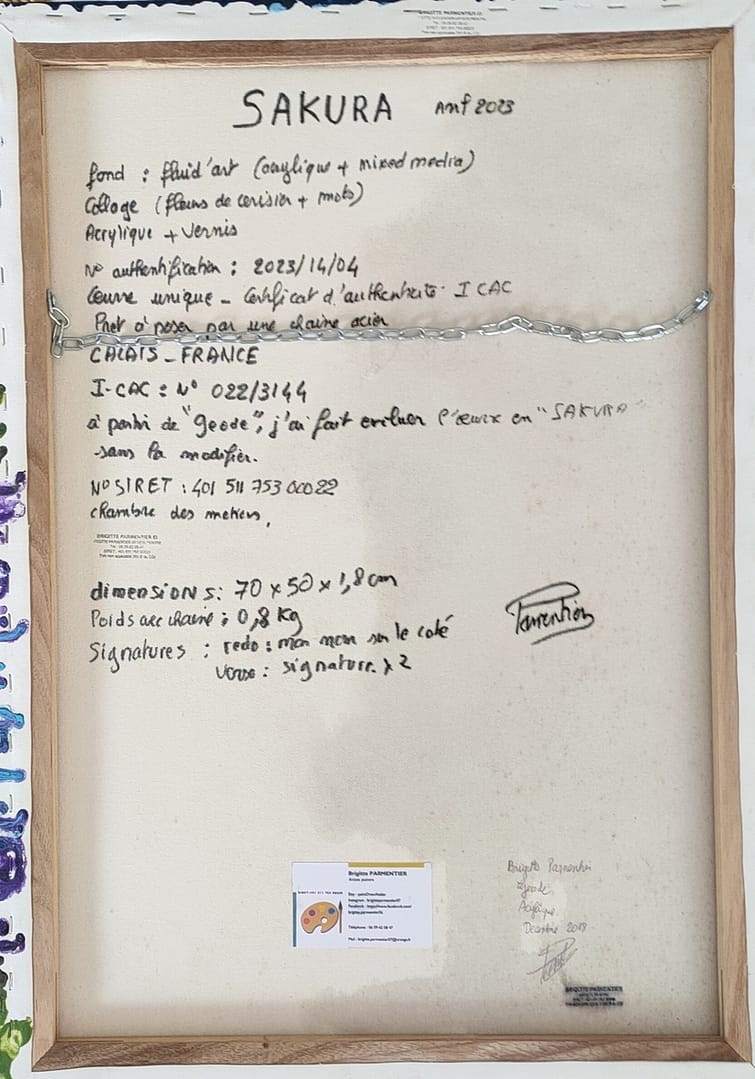 BRIGITTE PARMENTIER EI
SAKURA
fond : fluid'art (acrylique + mixed media)
Collage (fleurs de cerisier + mots)
Acrylique + Vernis
N° authentification : 2023/14/04
Œuvre unique - Certificat d'authenticité I CAC
Prêt à poser par une chaine acier
CALAIS - FRANCE
I-CAC : N° 022/3144
à partir de "geode", j'ai fait evoluer l'œuvre en "SAKURA"
sans la modifier.
N° SIRET : 401 511 753 00022
chambre des metiers,
BRIGITTE PARMENTIER EI
dimensions : 70 x 50 x 1,8 cm
Poids avec chaine : 0,8 Kg
Signatures : recto : mon nom sur le coté
verso : signature x 2
Parmentier
Brigitte PARMENTIER
Artiste peintre
Brigitte Parmentier
Geode
Acrylique
Décembre 2018
BRIGITTE PARMENTIER